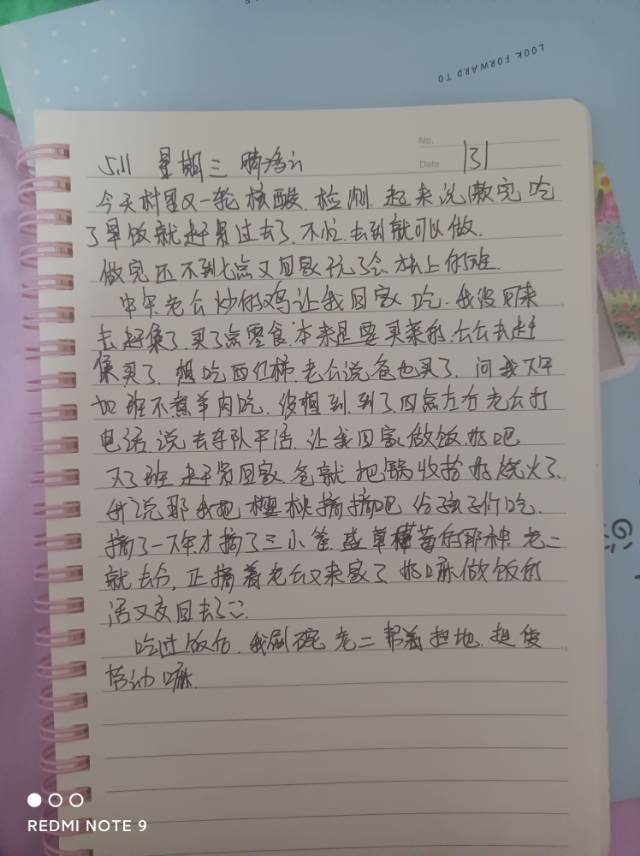 LOOK FORWARD TO
No.
Date 131
5.11 星期三 晴
今天村里又一轮核酸检测.起来说做完吃
了早饭就赶紧过去了.不忙.去到就可以做.
做完还不到七点又回家玩了会.才去上的班.
中午老公炒的鸡让我回家吃.我没回来
去赶集了.买了点零食.本来是要买菜的.公公去赶
集买了.想吃西红柿.老公说爸也买了.问我下午
加班不煮羊肉吃.没想到.到了四点左右老公打
电话.说去车队干活.让我回家做饭.好吧
下了班赶紧回家.爸就把锅收拾好烧火了.
我说那我把樱桃摘摘吧.给孩子们吃.
摘了一下午才摘了三小筐.盛草莓的那种.老二
就去分.正摘着老公又来家了.好嘛做饭的
活又交回去了
吃过饭后.我刷碗.老二帮着扫地.
劳动嘛.
REDMI NOTE 9